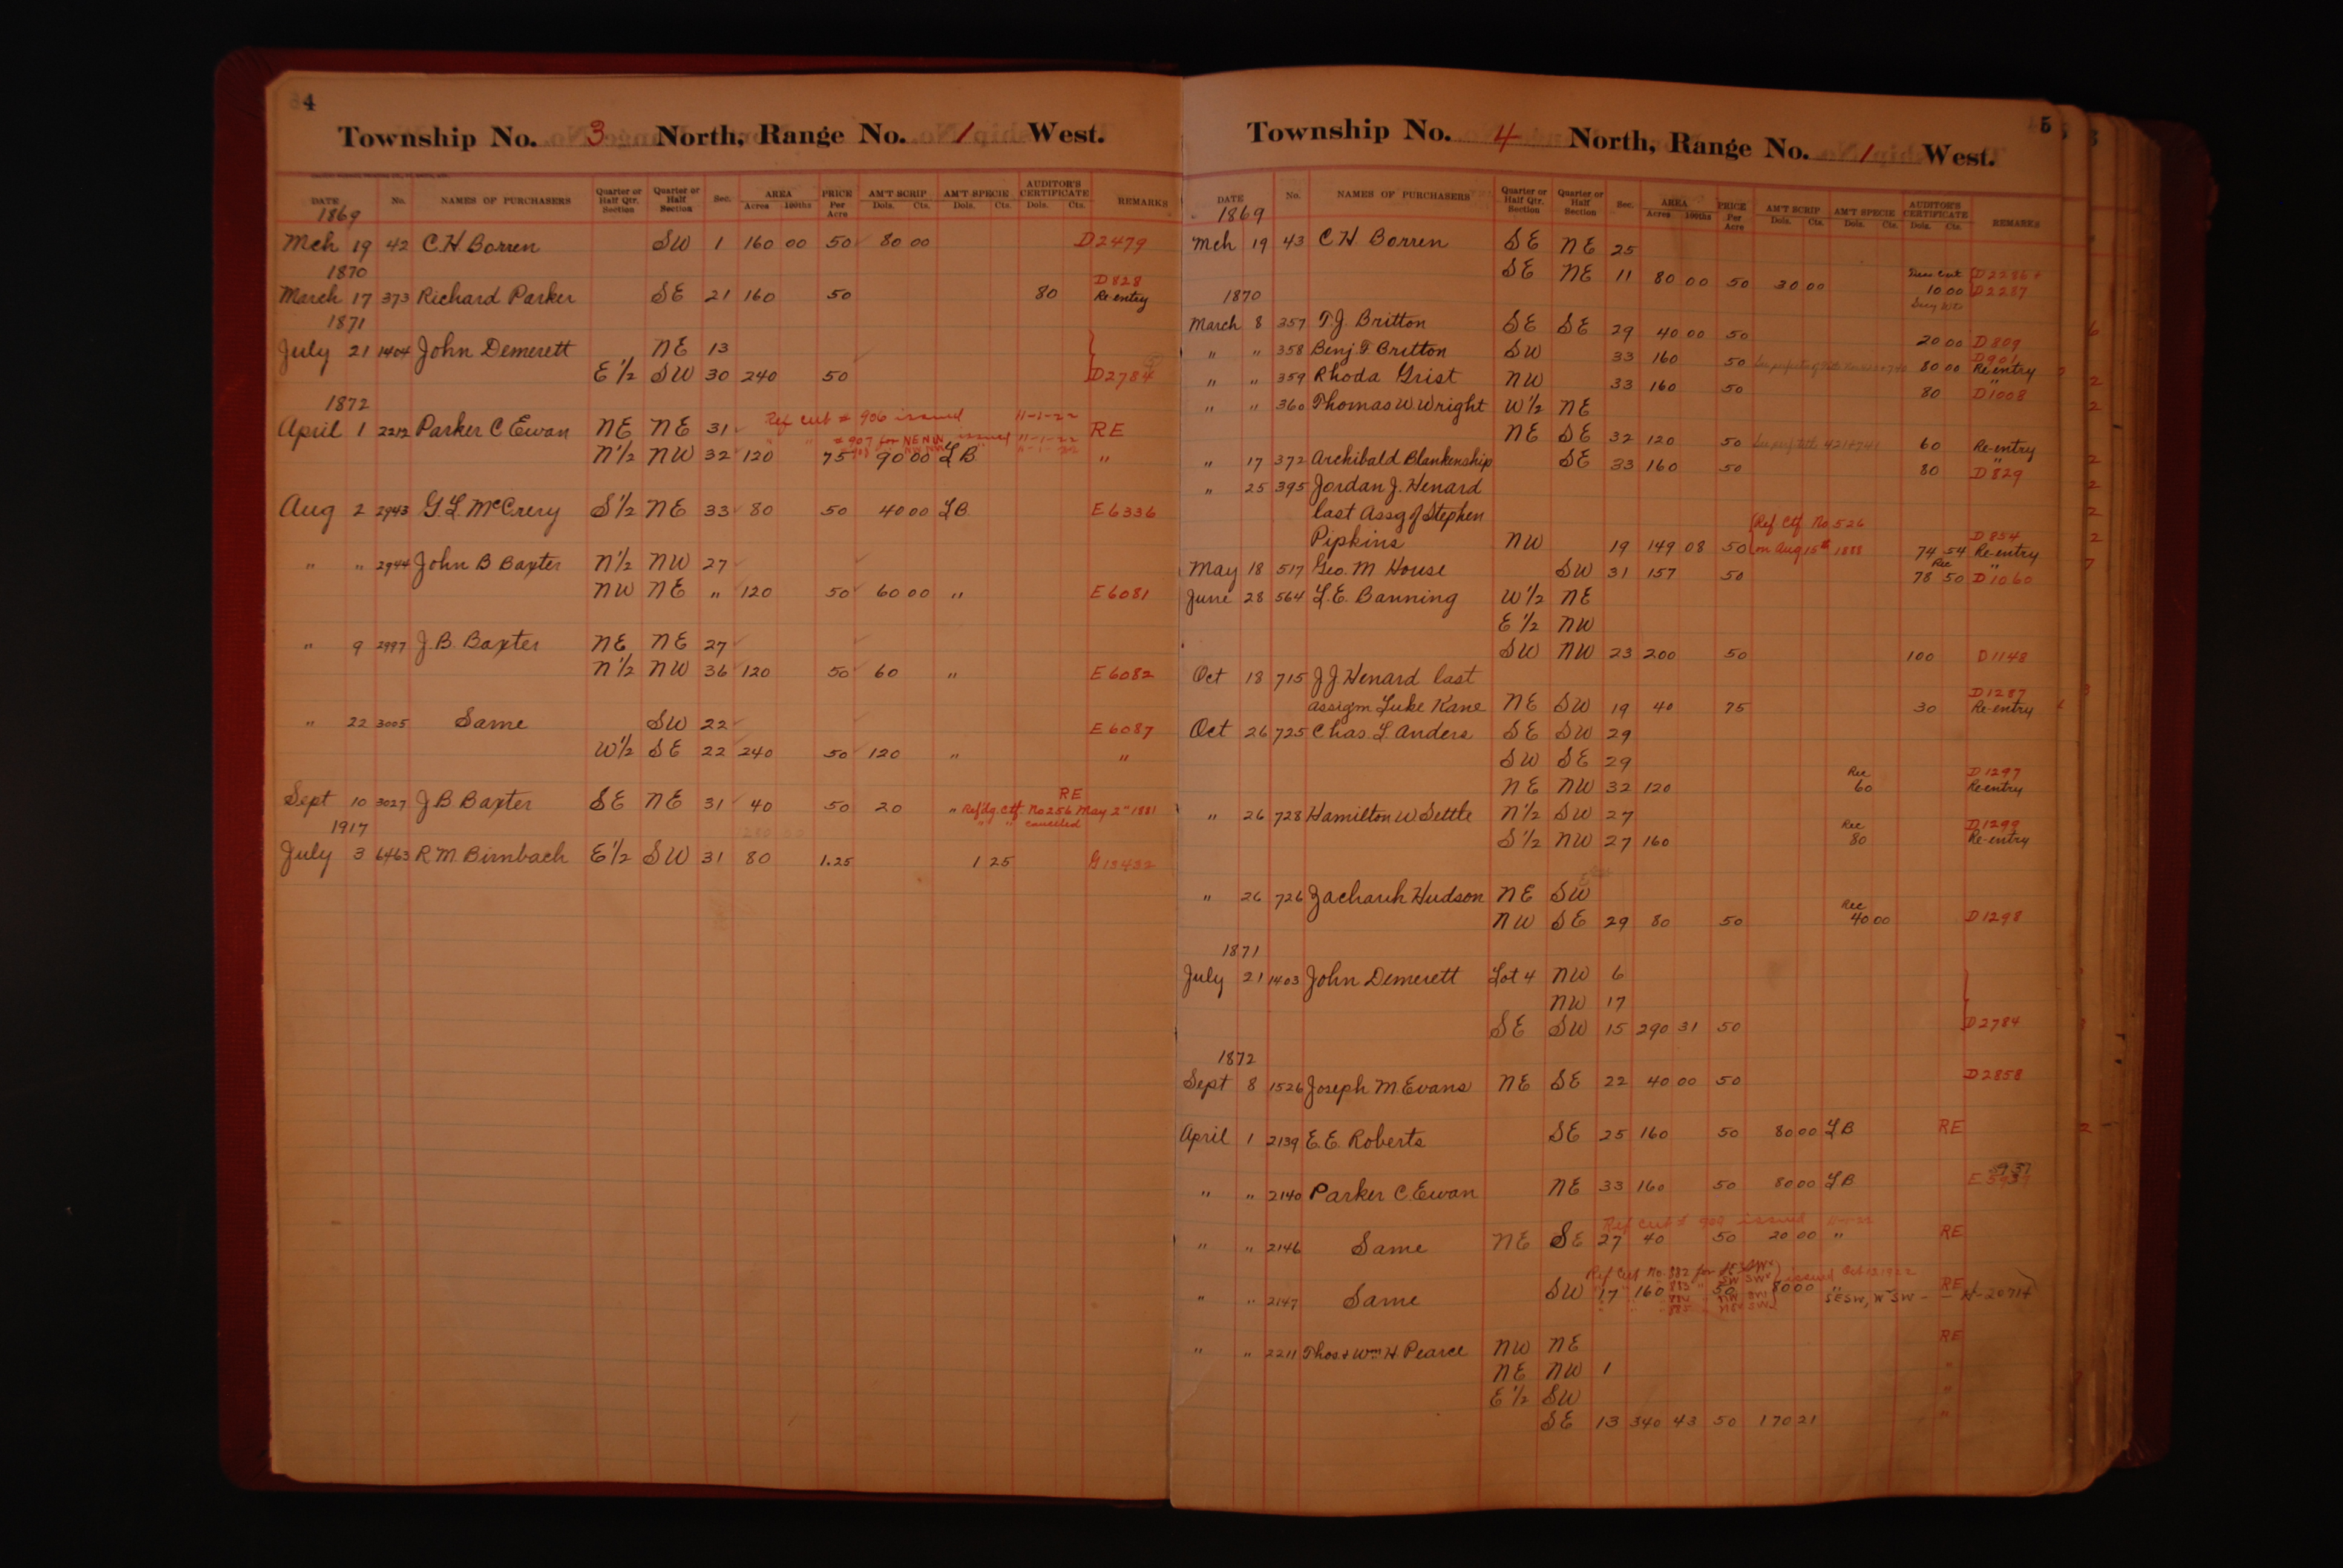 4
Township No. 3 North, Range No. 1 West.
DATE No. NAMES OF PURCHASERS Quarter or Half Qtr. Section Quarter or Half Section Sec. AREA Acres 100ths PRICE Per Acre AM'T SCRIP Dols. Cts. AM'T SPECIE Dols. Cts. AUDITOR'S CERTIFICATE Dols. Cts. REMARKS
1869
Mch 19 42 C.H Borren SW 1 160 00 50 80 00 D2479
1870
D828
March 17 373 Richard Parker SE 21 160 50 80 Re-entry
1871
July 21 1404 John Demerett NE 13
E 1/2 SW 30 240 50 D2784
1872
Ref cert # 906 issued 11-1-22
April 1 2212 Parker C Ewan NE NE 31 RE
" " # 907 for NE NW issued 11-1-22
N 1/2 NW 32 120 75 90 00 LB "
Aug 2 2943 G.L. McCrery S 1/2 NE 33 80 50 40 00 LB E6336
" " 2944 John B Baxter N 1/2 NW 27
NW NE " 120 50 60 00 " E6081
" 9 2997 J.B. Baxter NE NE 27
N 1/2 NW 36 120 50 60 " E6082
" 22 3005 Same SW 22 E6087
W 1/2 SE 22 240 50 120 " "
RE
Sept 10 3027 J.B Baxter SE NE 31 40 50 20 " Ref'dg. Ctf. No 256 May 2" 1881
" " cancelled
1917
July 3 6463 R.M. Birnbach E 1/2 SW 31 80 1.25 1 25 G13432
5
Township No. 4 North, Range No. 1 West.
DATE No. NAMES OF PURCHASERS Quarter or Half Qtr. Section Quarter or Half Section Sec. AREA Acres 100ths PRICE Per Acre AM'T SCRIP Dols. Cts. AM'T SPECIE Dols. Cts. AUDITOR'S CERTIFICATE Dols. Cts. REMARKS
1869
Mch 19 43 C H Borren SE NE 25
SE NE 11 80 00 50 30 00 D2286 +
10 00 D2287
1870
March 8 357 T.J. Britton SE SE 29 40 00 50 20 00 D809
D901
" " 358 Benj. F Britton SW 33 160 50 80 00 Re-entry
" " 359 Rhoda Grist NW 33 160 50 80 " D1008
" " 360 Thomas W Wright W 1/2 NE
NE SE 32 120 50 60 Re-entry
" 17 372 Archibald Blankenship SE 33 160 50 80 " D829
" 25 395 Jordan J. Henard
last Assg of Stephen
Ref Ctf No 526
D854
Pipkins NW 19 149 08 50 on Aug 15th 1888 74 54 Re-entry
May 18 517 Geo. M House SW 31 157 50 Rec 78 50 " D1060
June 28 564 L.E. Banning W 1/2 NE
E 1/2 NW
SW NW 23 200 50 100 D1148
Oct 18 715 J J Henard last
D1287
assig'm Luke Kane NE SW 19 40 75 30 Re-entry
Oct 26 725 Chas. L. Anders SE SW 29
SW SE 29
Rec D1297
NE NW 32 120 60 Re-entry
" 26 728 Hamilton W Settle N 1/2 SW 27
Rec D1299
S 1/2 NW 27 160 80 Re-entry
" 26 726 Zacharih Hudson NE SW
Rec
NW SE 29 80 50 40 00 D1298
1871
July 21 1403 John Demerett Lot 4 NW 6
NW 17
SE SW 15 290 31 50 D2784
1872
Sept 8 1526 Joseph M. Evans NE SE 22 40 00 50 D2858
April 1 2139 E.E. Roberts SE 25 160 50 80 00 LB RE
" " 2140 Parker C. Ewan NE 33 160 50 80 00 LB
Ref cert # 909 issued 11-1-22
" " 2146 Same NE SE 27 40 50 20 00 " RE
Ref Cert No. 882 issued Oct 12 1922
" " 2147 Same SW 17 160 50 80 00 " RE
" " 2211 Thos. & Wm. H Pearce NW NE RE
NE NW 1 "
E 1/2 SW "
SE 13 340 43 50 170 21 "